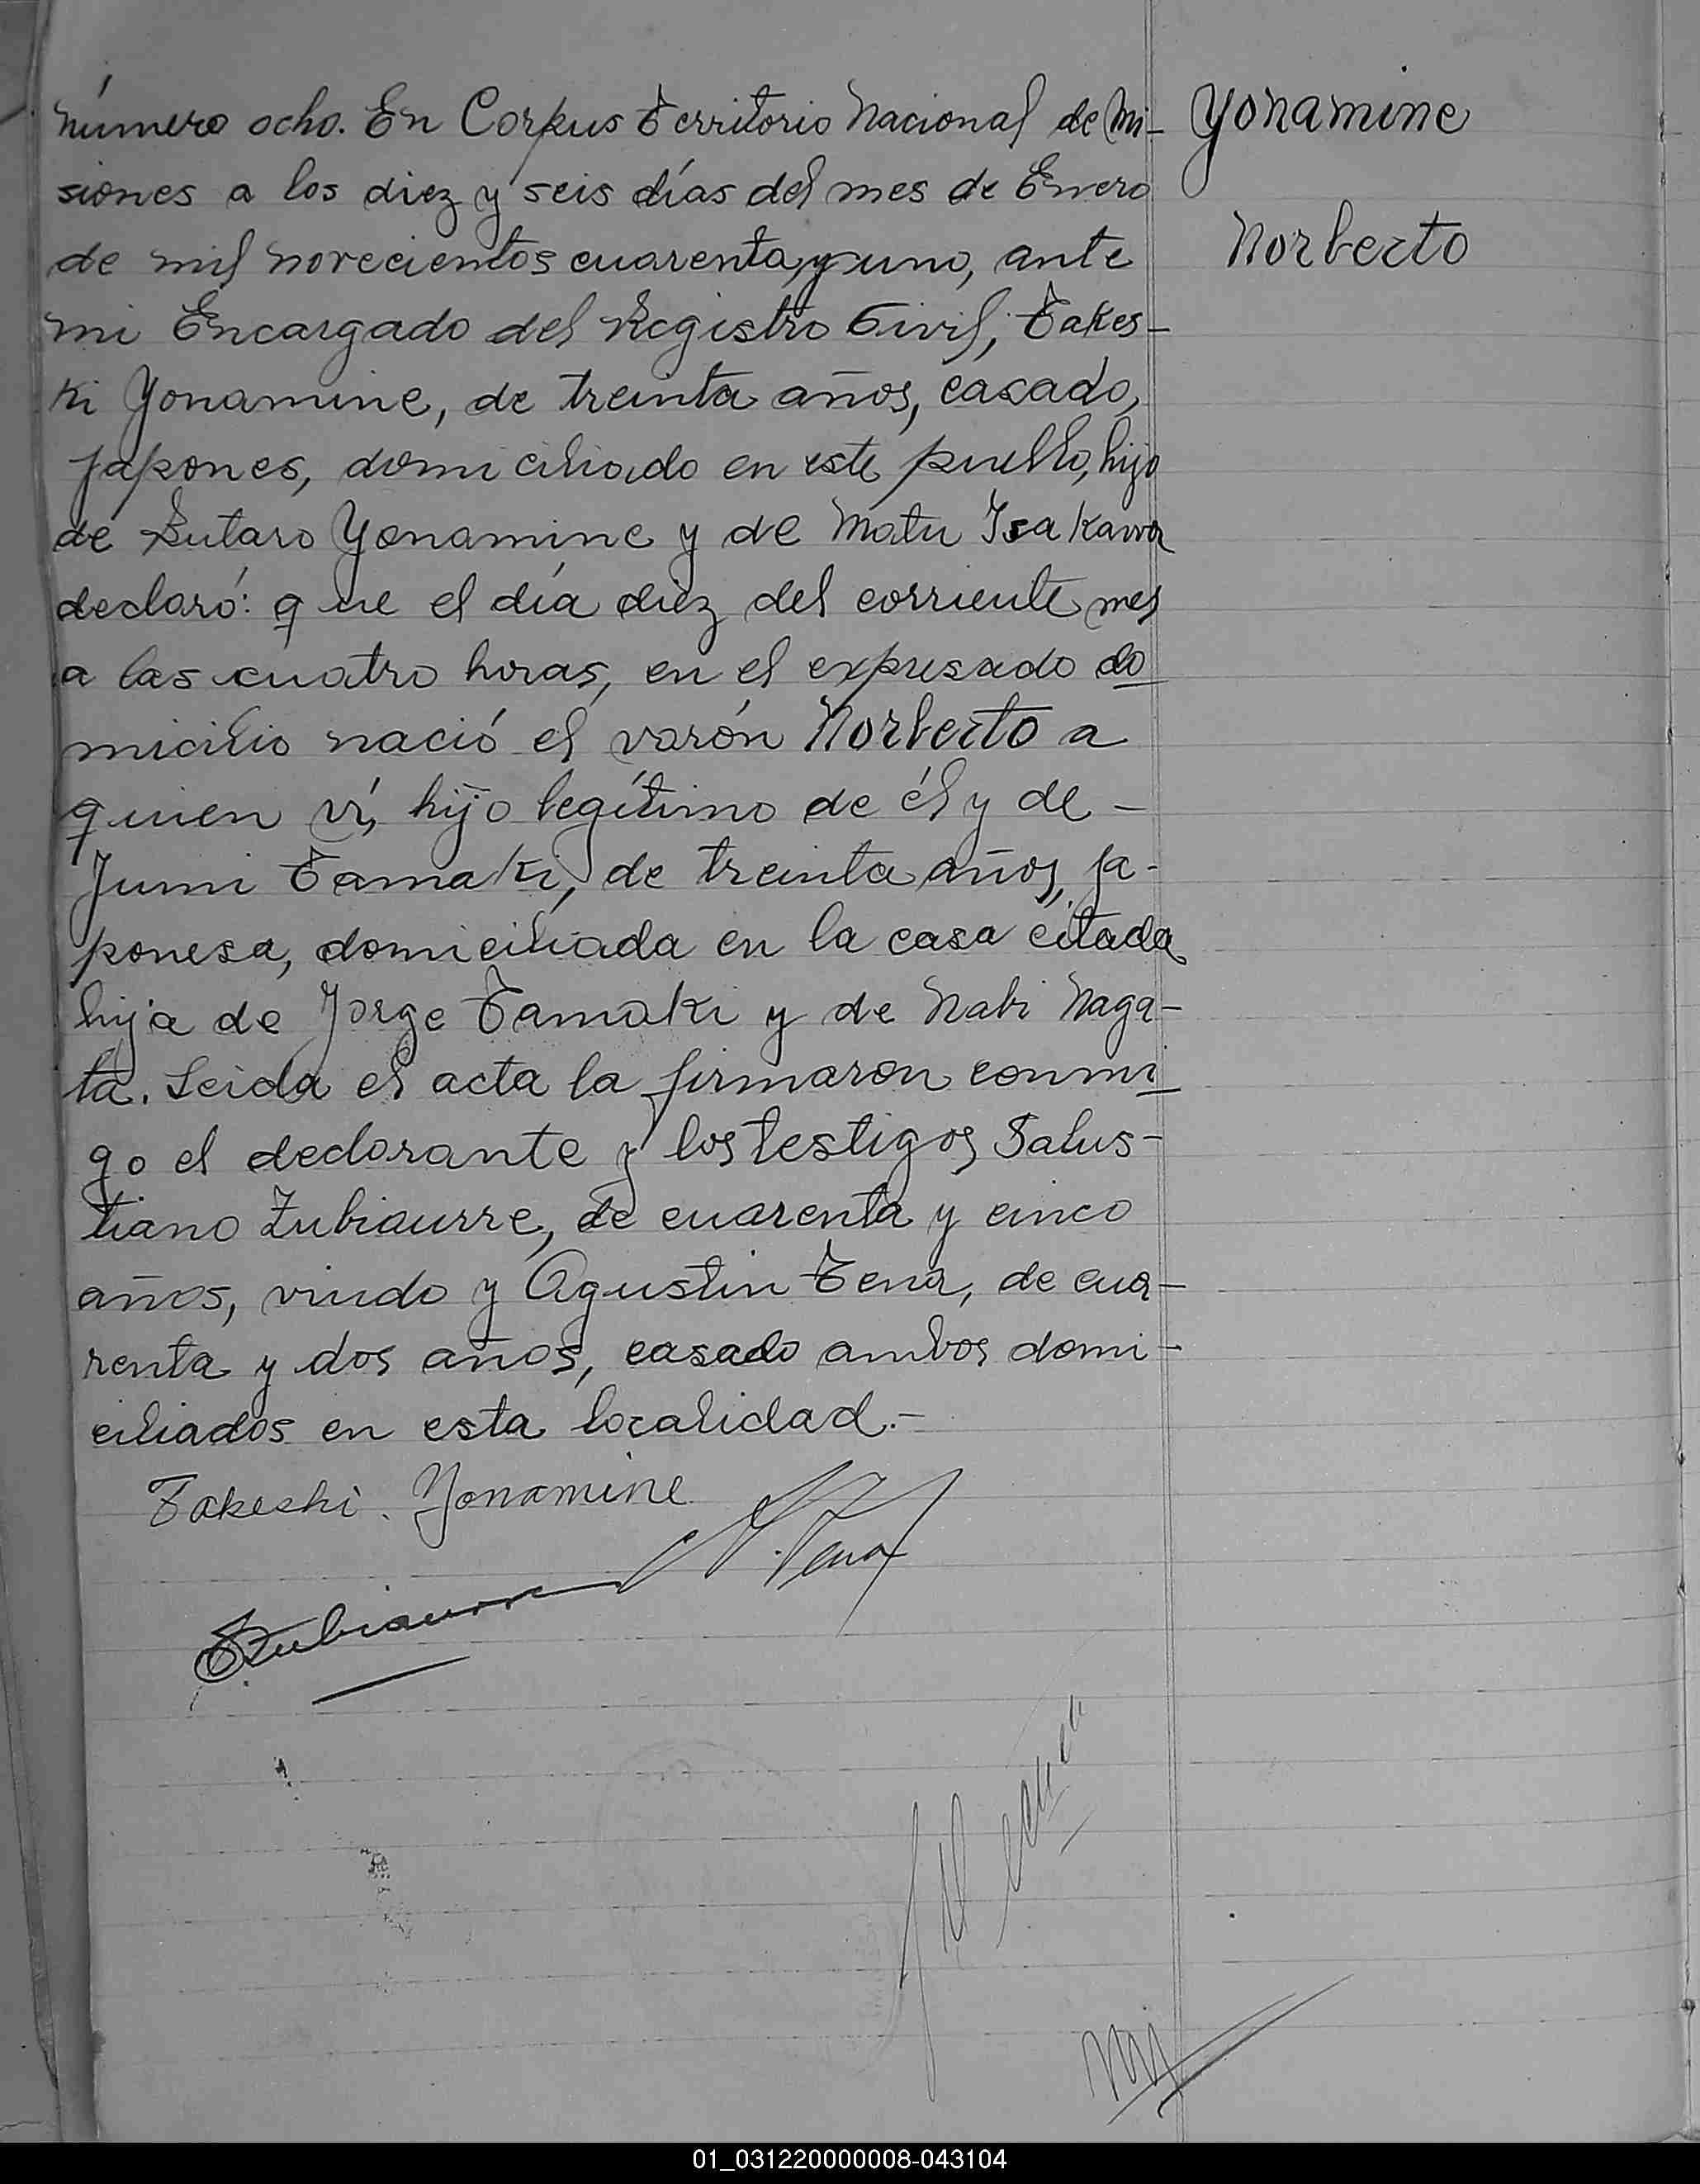 número ocho. En Corpus Territorio Nacional de Mi-
siones a los diez y seis días del mes de Enero
de mil novecientos cuarenta y uno, ante
mi Encargado del Registro Civil, Takes-
ki Yonamine, de treinta años, casado,
japones, domiciliado en este pueblo, hijo
de Sutaro Yonamine y de Matu Isakawa
declaró: que el día diez del corriente mes
a las cuatro horas, en el expresado do
micilio nació el varón Norberto a
quien ví, hijo legítimo de él y de -
Jumi Tamaki, de treinta años, ja-
ponesa, domiciliada en la casa citada
hija de Jorge Tamaki y de Nabi Naga-
ta. Leida el acta la firmaron conmi
go el declarante y los testigos Salus-
tiano Zubiaurre, de cuarenta y cinco
años, viudo y Agustin Tena, de cua-
renta y dos años, casado ambos domi-
ciliados en esta localidad.-
Takeshi. Yonamine
A. Tena
SZubiaurre
Yonamine
Norberto
01_031220000008-043104